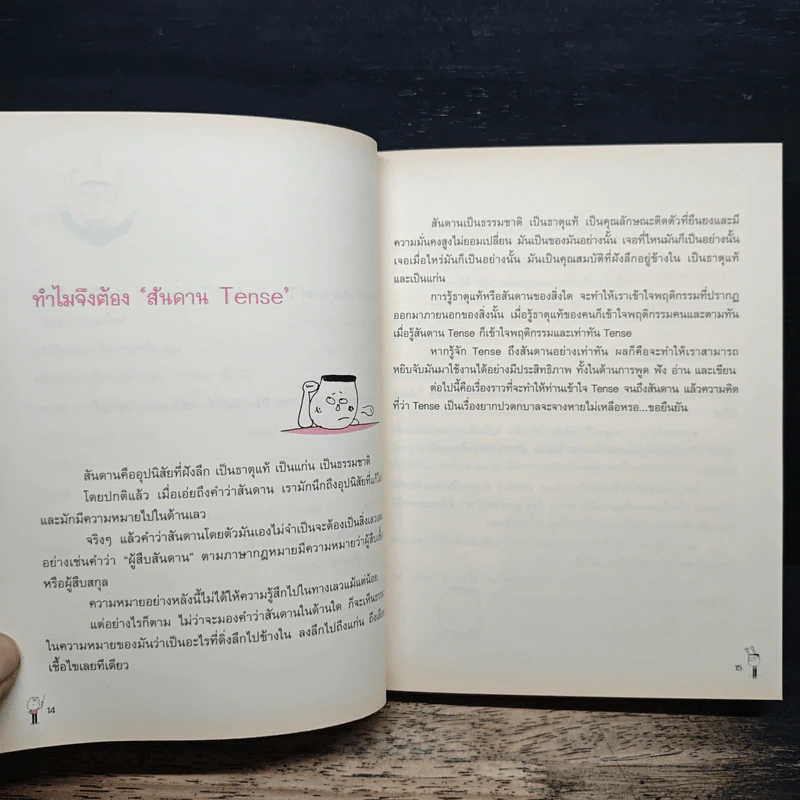 ทำไมจึงต้อง 'สันดาน Tense'
สันดานคืออุปนิสัยที่ฝังลึก เป็นธาตุแท้ เป็นแก่น เป็นธรรมชาติ
โดยปกติแล้ว เมื่อเอ่ยถึงคำว่าสันดาน เรามักนึกถึงอุปนิสัยที่แก้ไม่
และมักมีความหมายไปในด้านเลว
จริงๆ แล้วคำว่าสันดานโดยตัวมันเองไม่จำเป็นจะต้องเป็นสิ่งเลว
อย่างเช่นคำว่า "ผู้สืบสันดาน" ตามภาษากฎหมายมีความหมายว่าผู้สืบเชื้อ
หรือผู้สืบสกุล
ความหมายอย่างหลังนี้ไม่ได้ให้ความรู้สึกไปในทางเลวแม้แต่น้อย
แต่อย่างไรก็ตาม ไม่ว่าจะมองคำว่าสันดานในด้านใด ก็จะเห็น
ในความหมายของมันว่าเป็นอะไรที่ดิ่งลึกไปข้างใน ลงลึกไปถึงแก่น
เชื้อไขเลยทีเดียว
14
สันดานเป็นธรรมชาติ เป็นธาตุแท้ เป็นคุณลักษณะติดตัวที่ยืนยงและมี
ความมั่นคงสูงไม่ยอมเปลี่ยน มันเป็นของมันอย่างนั้น เจอที่ไหนมันก็เป็นอย่างนั้น
เจอเมื่อไหร่มันก็เป็นอย่างนั้น มันเป็นคุณสมบัติที่ฝังลึกอยู่ข้างใน เป็นธาตุแท้
และเป็นแก่น
การรู้ธาตุแท้หรือสันดานของสิ่งใด จะทำให้เราเข้าใจพฤติกรรมที่ปรากฏ
ออกมาภายนอกของสิ่งนั้น เมื่อรู้ธาตุแท้ของคนก็เข้าใจพฤติกรรมคนและตามทัน
เมื่อรู้สันดาน Tense ก็เข้าใจพฤติกรรมและเท่าทัน Tense
หากรู้จัก Tense ถึงสันดานอย่างเท่าทัน ผลก็คือจะทำให้เราสามารถ
หยิบจับมันมาใช้งานได้อย่างมีประสิทธิภาพ ทั้งในด้านการพูด ฟัง อ่าน และเขียน
ต่อไปนี้คือเรื่องราวที่จะทำให้ท่านเข้าใจ Tense จนถึงสันดาน แล้วความคิด
ที่ว่า Tense เป็นเรื่องยากปวดกบาลจะจางหายไม่เหลือหรอ...ขอยืนยัน
15